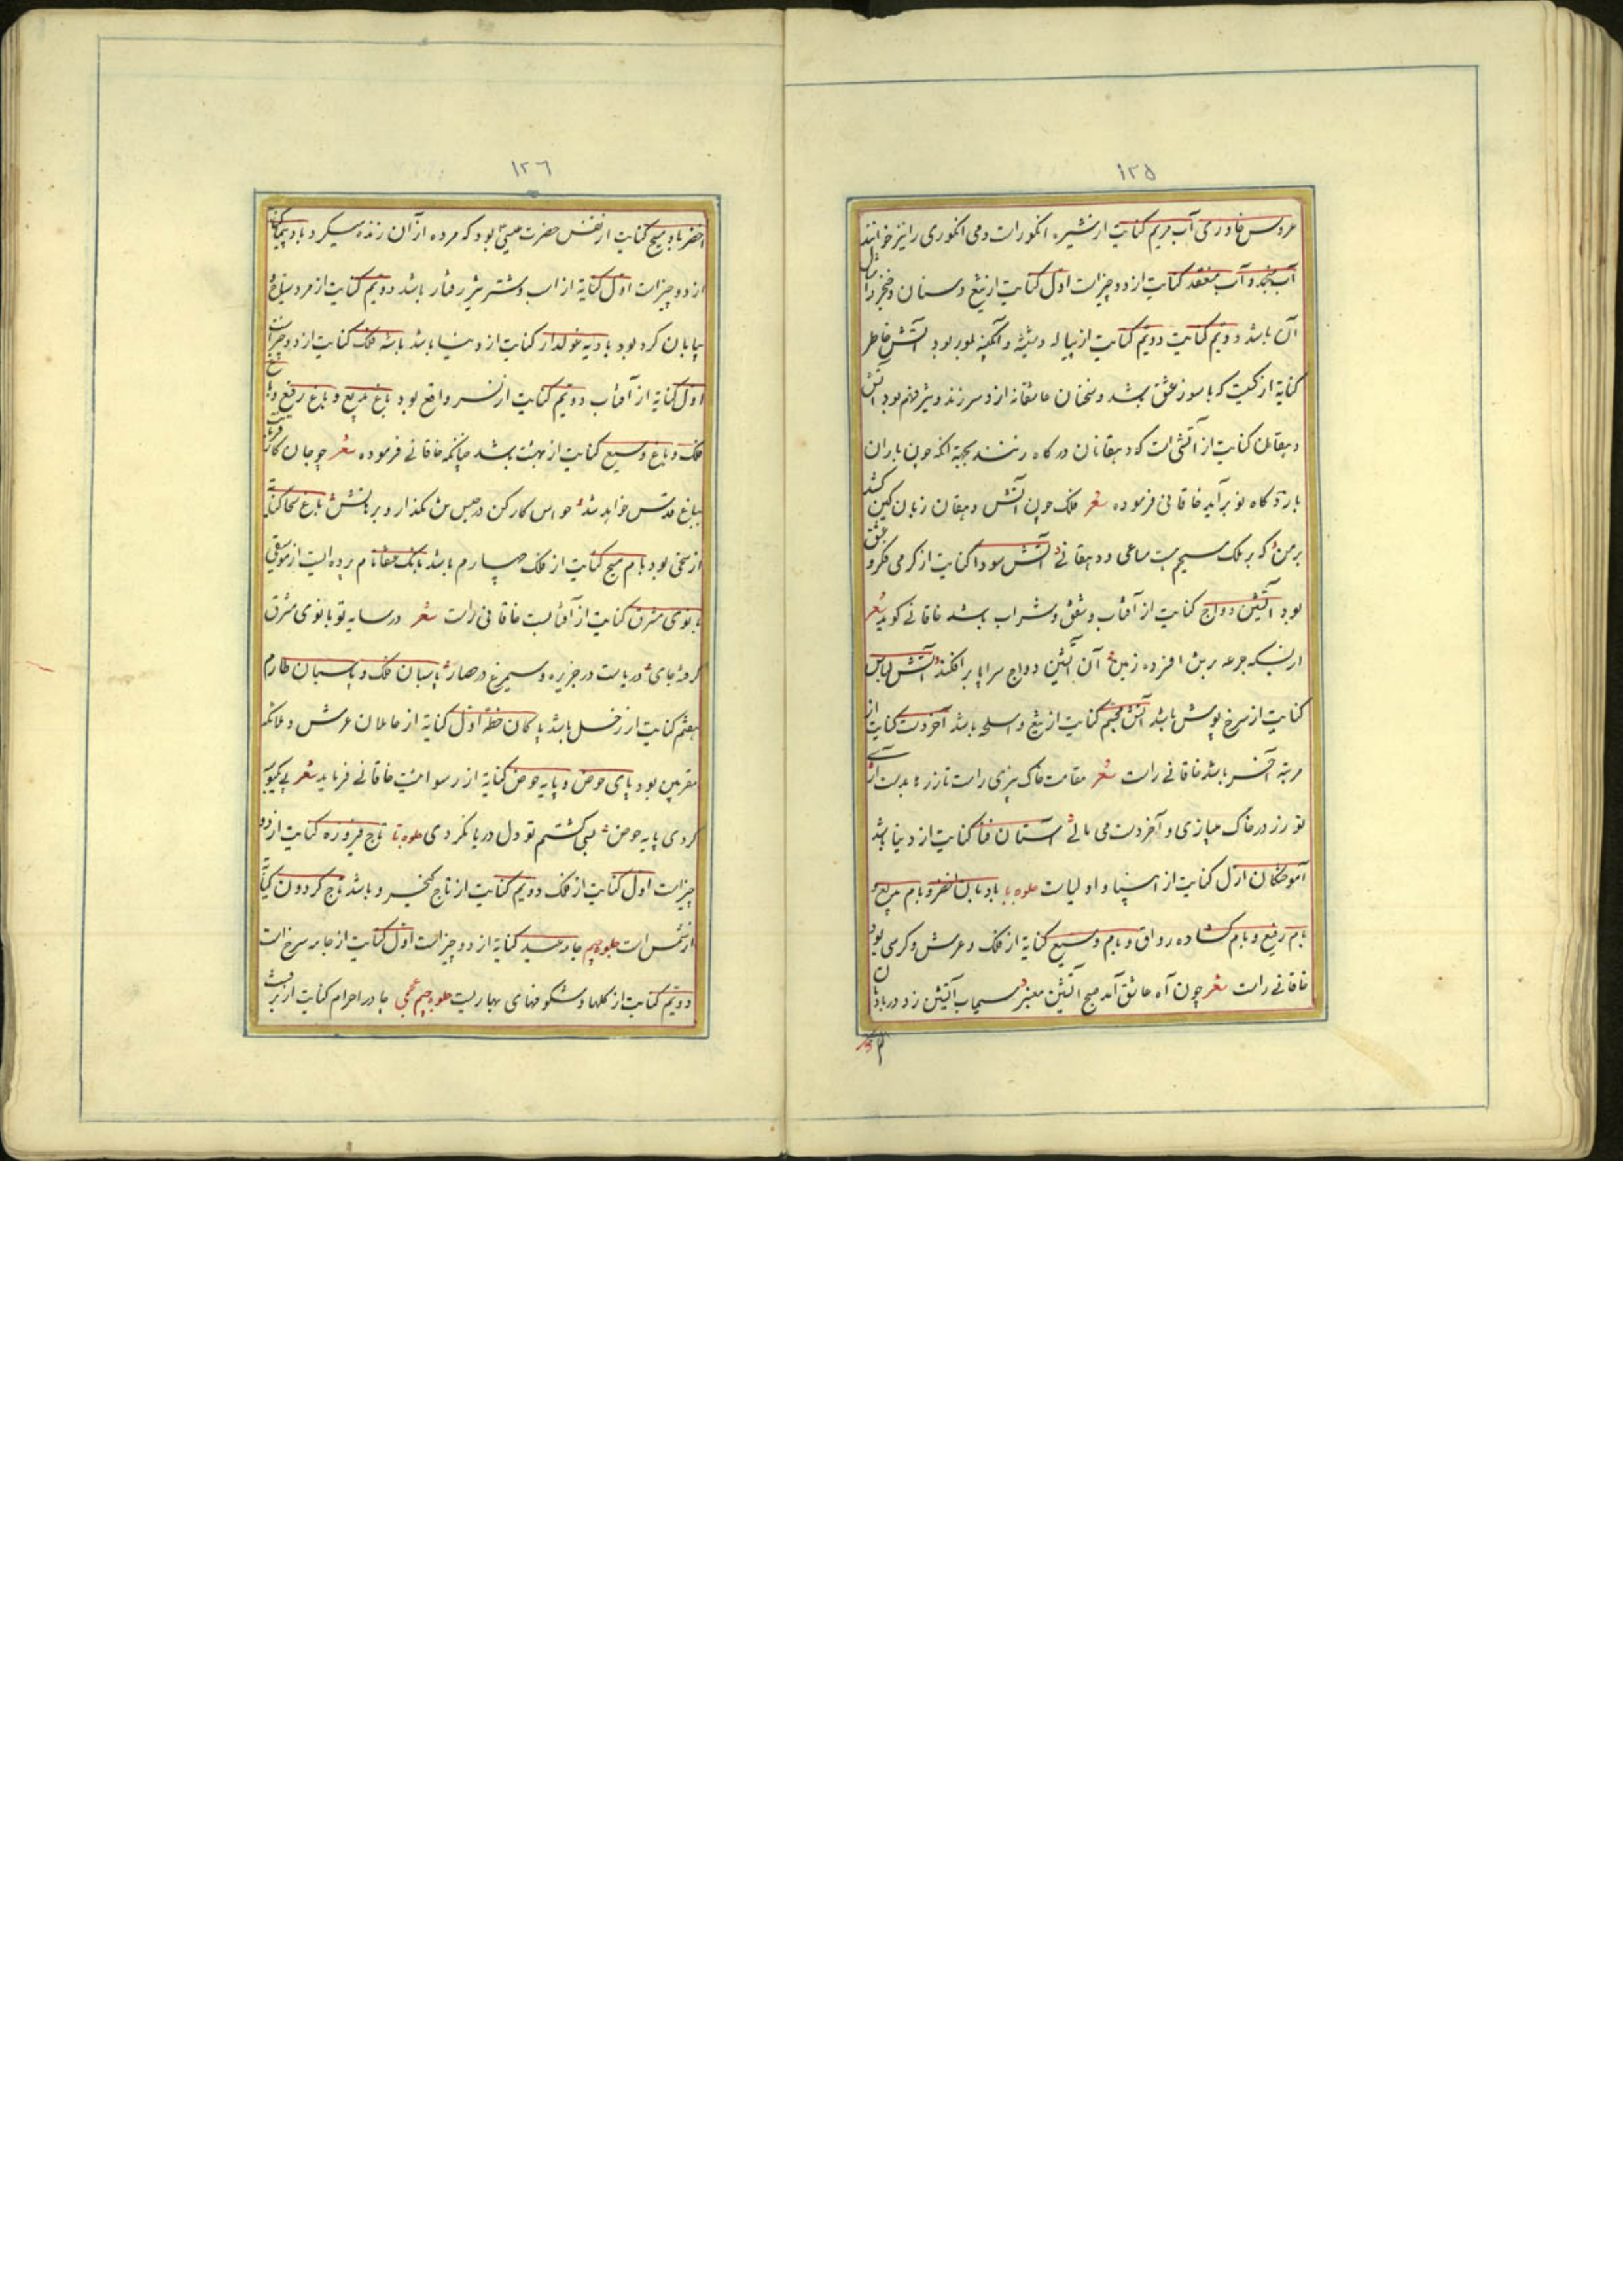 ١٢٥
عروس خاوری آب مریم کنایت از شیره انگورات ومی انگوری را نیز خوانند
آب منجمد و آب منعقد کنایت از دو چیزات اول کنایت از تیغ و سنان و خنجر و امثال
آن باشد دویم کنایت دویم کنایت از پیاله وشیشه و آبگینه بلور بود آتش خاطر
کنایة از کیست که با سوز عشق باشد و سخنان عاشقانه ازو سرزند و تیز فهم بود آتش
دهقان کنایت از آتشی است که دهقانان در کاه زنند بجهة آنکه چون باران
بارد کاه نو برآید خاقانی فرموده شعر فلک چون آتش دهقان زبان کین کشد
بر من که بر ملک مسیحم هست مساحی و دهقانی آتش سودا کنایت از کرمی فکر و عشق
بود آتشین دواج کنایت از آفتاب و شفق و شراب باشد خاقانی کوید شعر
از بسکه جرعه بر تن افسرده زمین آن آتشین دواج سراپا برافکند آتش لباس
کنایت از سرخ پوش باشد آتش مجسم کنایت از تیغ و اسلحه باشد آخر دست کنایت از
مرتبه آخر باشد خاقانی راست شعر مقامت خاک بیزی راست تا زر ها بدست آری
تو زر در خاک میبازی و آخر دست می مالی آستان فنا کنایت از دنیا باشد
آموختکان ازل کنایت از انبیا و اولیات جلوه با بادبان اخضر و بام بدیع و
بام رفیع و بام کشاده رواق و بام وسیع کنایة از فلک و عرش و کرسی بود
خاقانی راست شعر چون آه عاشق آمد صبح آتشین معنبر سیماب آتشین زد در بادبان
اخضر
١٢٦
اخضر باد مسیح کنایت از نفس حضرت عیسی بود که مرده از آن زنده میکرد باد پیما کنایة
از دو چیزات اول کنایة از اسب و شتر تیز رفتار باشد دویم کنایت از مرد سیاح
بیابان کرد بود بادیه غولدار کنایت از دنیا باشد باشه فلک کنایت از دو چیزاست
اول کنایة از آفتاب دویم کنایت از نسر واقع بود باغ بدیع و باغ رفیع و باغ
فلک و باغ وسیع کنایت از بهشت باشد چنانکه خاقانی فرموده شعر چو جان کار فرمایت
بباغ قدس خواهد شد حواس کار کن در حبس تن مکذار و برهانش باغ سخا کنایة
از سخی بود بام مسیح کنایت از فلک چهارم باشد بانک عنقا نام پرده ایست از موسیقی
بانوی مشرق کنایت از آفتابست خاقانی راست شعر در سایه تو بانوی مشرق
کرفته جای دریاست در جزیره و سیمرغ در حصار پاسبان فلک و پاسبان طارم
هفتم کنایت از زحل باشد پاکان خطه اول کنایة از حاملان عرش و ملائکه
مقربین بود پای حوض و پایه حوض کنایة از رسوائیست خاقانی فرماید شعر
کردی پایه حوض بسی کشتم تو دل دریا نکردی جلوه تا تاج فیروزه کنایت از دو
چیزات اول کنایت از فلک دویم کنایت از تاج کیخسرو باشد تاج کردون کنایة
از شمس است جلوه جیم جامه عید کنایة از دو چیزات اول کنایت از جامه سرخ است
دویم کنایت از کلها و شکوفهای بهاریست جلوه جیم عجمی چادر احرام کنایت از برف